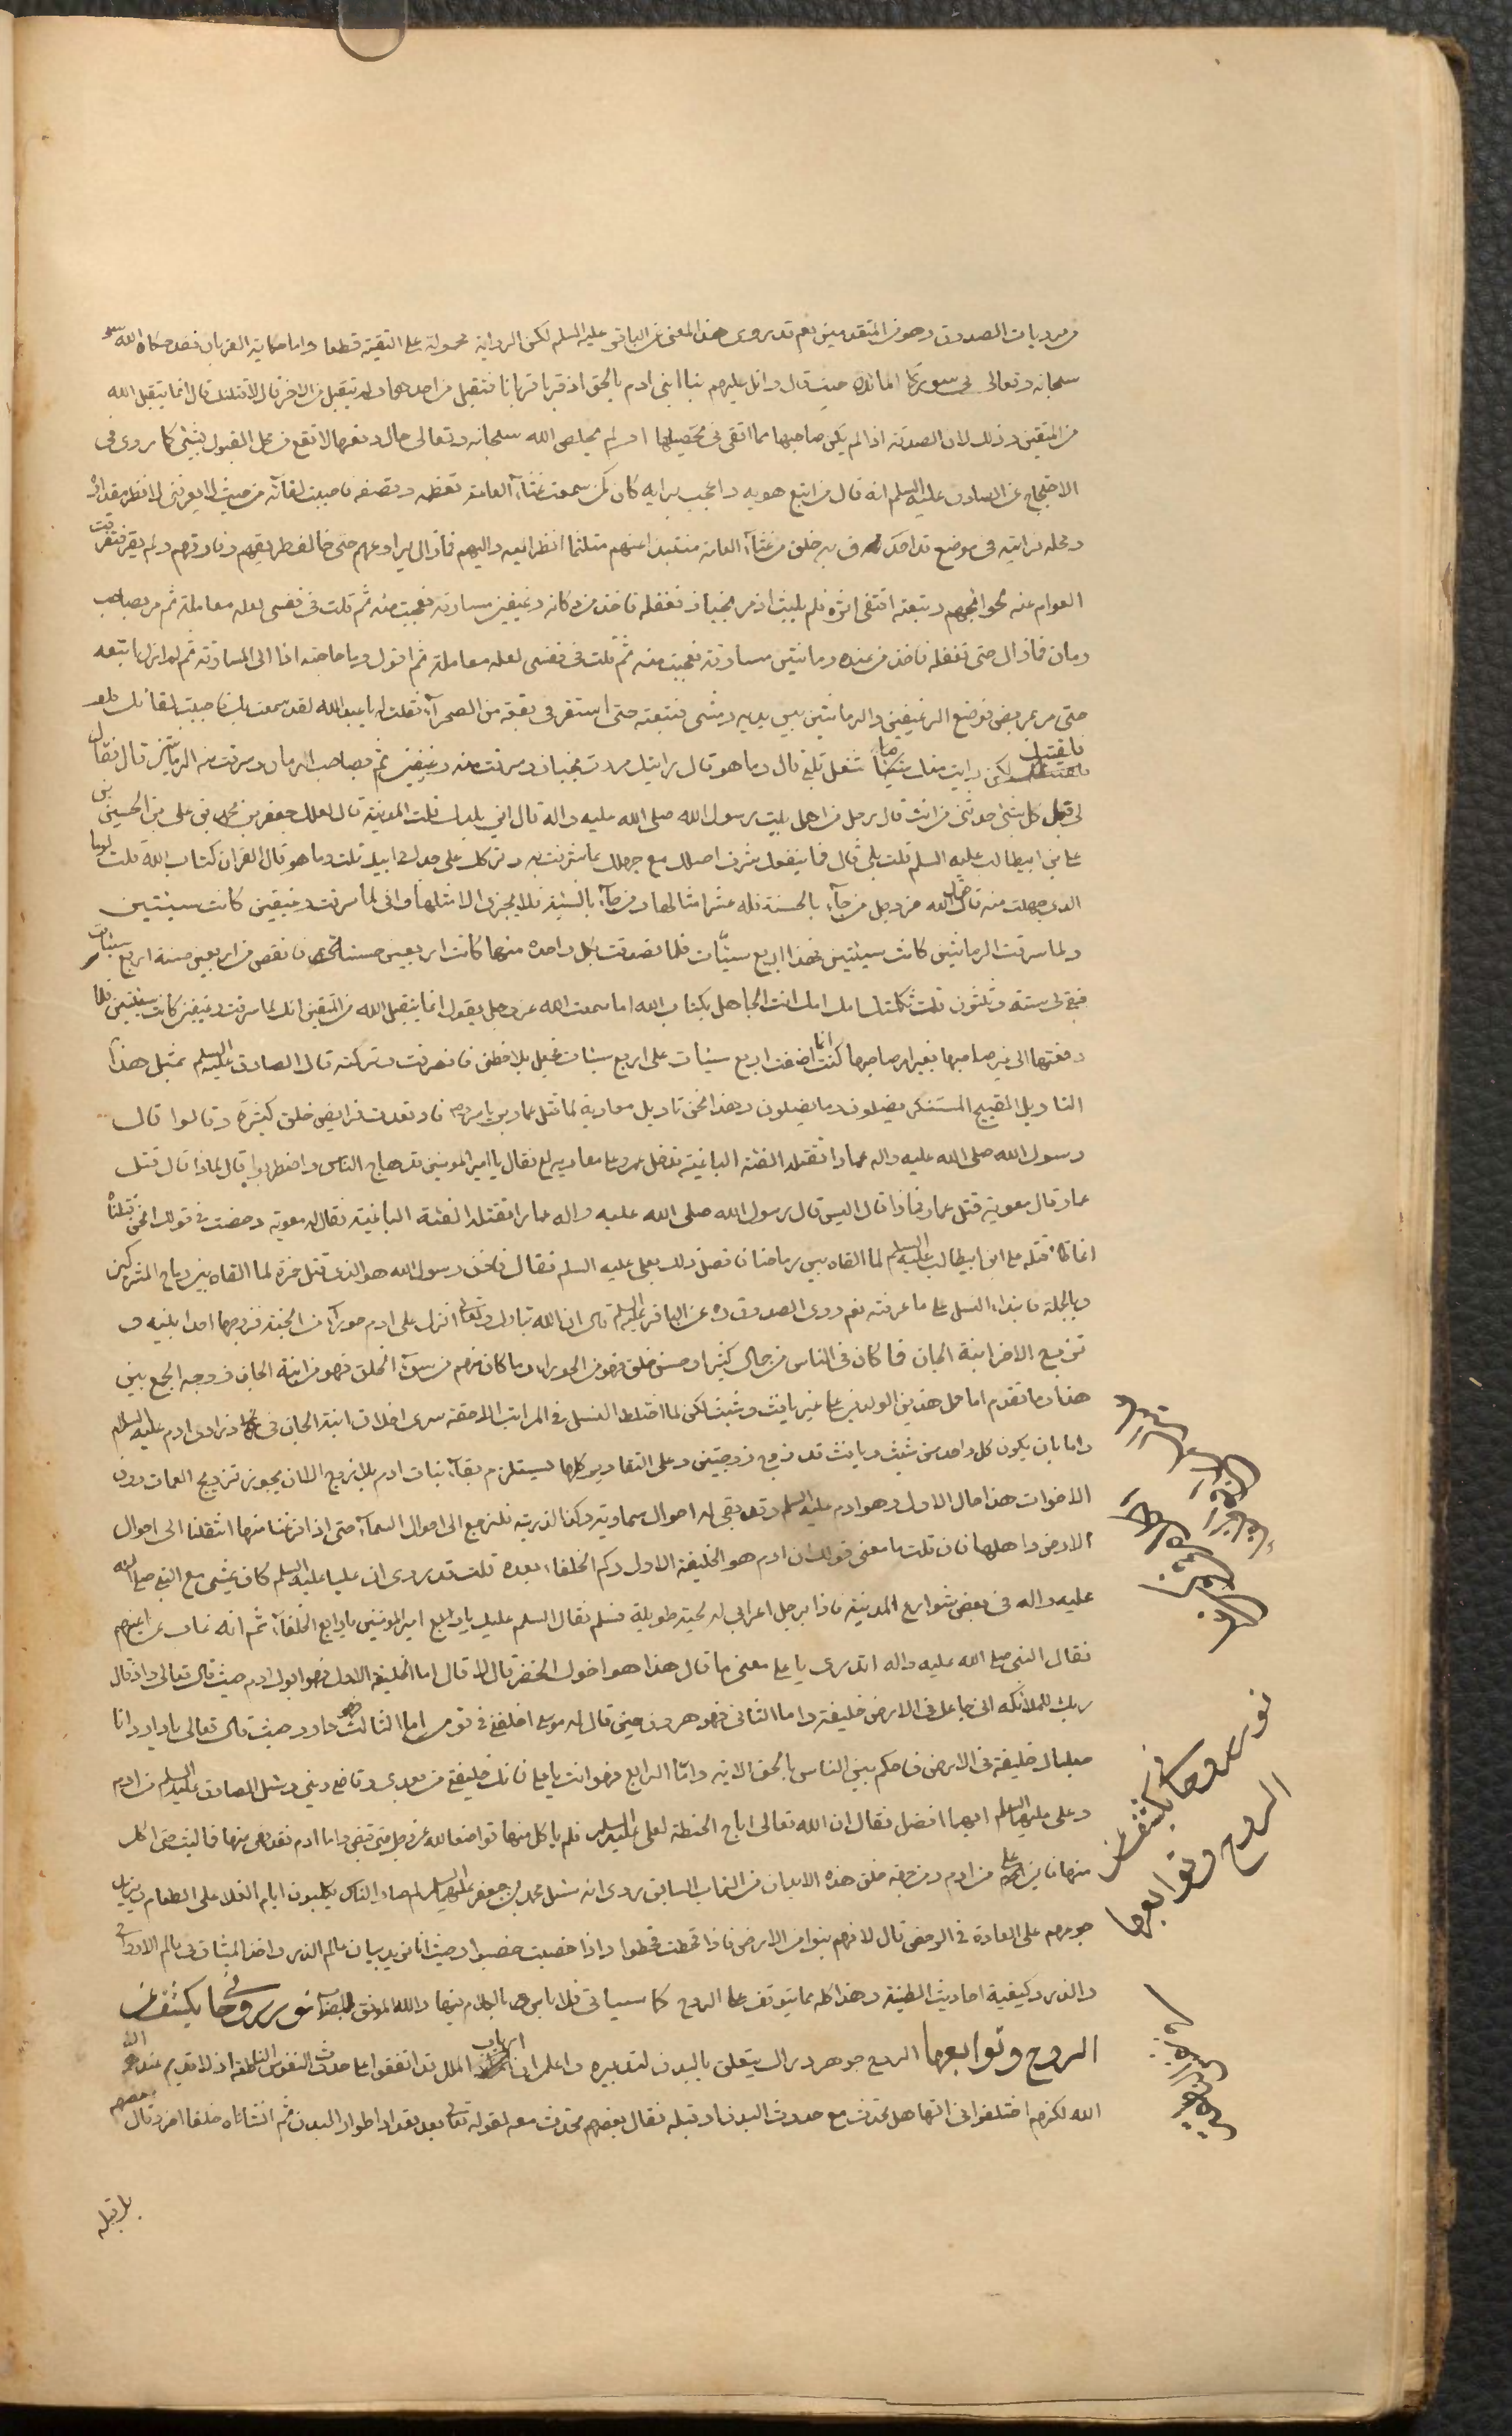 مرويات الصدوق وهو من المتقدمين نعم قد روى هذا المعنى عن الباقر عليه السلم لكن الرواية محمولة على التقية قطعا واما حكاية القربان فقد حكاه الله
سبحانه وتعالى في سورة المائدة حيث قال واتل عليهم نبا ابني ادم بالحق اذ قربا قربانا فتقبل من احدهما ولم يتقبل من الاخر قال لاقتلنك قال انما يتقبل الله
من المتقين وذلك لان الصدقة اذا لم يكن صاحبها مما اتقى في تحصيلها او لم يخلص الله سبحانه وتعالى حال دفعها لا تقع في محل القبول بشئ كما روى في
الاحتجاج عن الصادق عليه السلم انه قال من اتبع هويه واعجب برايه كان كمن سمعت غثاء العامة تعظمه وتصفه فاحببت لقائه من حيث لا يعرفني لانظر مقداره
ومحله فرايته في موضع قد احدق به خلق من غثاء العامة منتبذا عنهم متلثما انظر اليه واليهم فما زال يراوغهم حتى خالف طريقهم وفارقهم ولم يقر فتفرقت
العوام عنه لحوائجهم وتبعته اقتفى اثره فلم يلبث اذ مر بخباز فتغفله فاخذ من دكانه رغيفين مسارقة فعجبت منه ثم قلت في نفسى لعله معاملة ثم مر بصاحب
رمان فما زال حتى تغفله فاخذ من عنده رمانتين مسارقة فعجبت منه ثم قلت في نفسى لعله معاملة ثم اقول وما حاجته اذا الى المسارقة ثم لم ازل اتبعه
حتى مر بمريض فوضع الرغيفين والرمانتين بين يديه ومشى فتبعته حتى استقر في بقعة من الصحراء فقلت له يا عبد الله لقد سمعت بك فاحببت لقائك فلقيتك
لكن رايت منك ما شغل قلبي قال وما هو قال رايتك مررت بخباز وسرقت منه رغيفين ثم بصاحب الرمان وسرقت منه الرمانتين قال فقال
لي قبل كل شئ حدثني من انت قال رجل من اهل بيت رسول الله صلى الله عليه واله قال اين بلدك قلت المدينة قال لعلك جعفر بن محمد بن على بن الحسين بن
على بن ابيطالب عليه السلم قلت بلى قال فما ينفعك شرف اصلك مع جهلك بما شرفت به وتركك علم جدك وابيك قلت وما هو قال القران كتاب الله قلت وما
الذى جهلت منه قال قول الله عز وجل من جاء بالحسنة فله عشر امثالها ومن جاء بالسيئة فلا يجزى الا مثلها وانى لما سرقت رغيفين كانت سيئتين
ولما سرقت الرمانتين كانت سيئتين فهذه اربع سيئات فلما تصدقت بكل واحدة منها كانت اربعين حسنة فانقص من اربعين حسنة اربع سيئات
فبقى لى ستة وثلثون قلت ثكلتك امك انت الجاهل بكتاب الله اما سمعت الله عز وجل يقول انما يتقبل الله من المتقين انك لما سرقت رغيفين كانت سيئتين فلما
دفعتها الى غير صاحبها بغير امر صاحبها كنت انما اضفت اربع سيئات على اربع سيئات فجعل يلاحظني فانصرفت وتركته قال الصادق عليه السلم بمثل هذا
التاويل القبيح المستنكر يضلون ويضلون وهذا نحو تاويل معاوية لما قتل عمار بن ياسر ره فارتعدت فرايص خلق كثيرة وقالوا قال
رسول الله صلى الله عليه واله عمار تقتله الفئة الباغية فدخل عمرو على معاوية فقال يا امير المومنين قد هاج الناس واضطربوا قال لماذا قال قتل
عمار قال معوية قتل عمار فماذا قال اليس قال رسول الله صلى الله عليه واله عمار تقتله الفئة الباغية فقال له معوية دحضت في قولك انحن قتلناه
انما قتله على ابن ابيطالب عليه السلم لما القاه بين رماحنا فاتصل ذلك بعلى عليه السلم فقال فاذن رسول الله هو الذى قتل حمزة لما القاه بين رماح المشركين
وبالجملة فابتداء النسل على ما عرفته نعم روى الصدوق ره عن الباقر عليه السلم قال ان الله تبارك وتعالى انزل على ادم حوراء من الجنة فزوجها احد ابنيه و
تزوج الاخر ابنة الجان فما كان في الناس من جمال كثير او حسن خلق فهو من الحوراء وما كان منهم من سوء الخلق فهو من ابنة الجان ووجه الجمع بين
هذا وما تقدم اما حمل هذين الولدين على غير يافث وشيث لكن لما اختلط النسل في المراتب اللاحقة سرى اخلاق ابنة الجان في ذرارى ادم عليه السلم
واما بان يكون كل واحد من شيث ويافث قد زوج زوجتين وعلى التقادير كلها يستلزم بقاء بنات ادم بلا زوج الا ان يجوز تزويج العمات دون
الاخوات هذا حال الاول وهو ادم عليه السلم وقد بقى له احوال سماوية وكذا لذريته فلنرجع الى احوال السماء حتى اذا فرغنا منها انتقلنا الى احوال
الارض واهلها فان قلت ما معنى قولك ان ادم هو الخليفة الاول وكم الخلفاء بعده قلت قد روى ان عليا عليه السلم كان يمشى مع النبي صلى الله
عليه واله في بعض شوارع المدينة فاذا برجل اعرابي له لحية طويلة فسلم فقال السلم عليك يا رابع امير المومنين يا رابع الخلفاء ثم انه غاب عن اعينهم
فقال النبي صلى الله عليه واله اتدرى يا على معنى ما قال هذا هو اخوك الخضر قال لا قال اما الخليفة الاول فهو ابوك ادم حيث قال تعالى واذ قال
ربك للملائكة انى جاعل في الارض خليفة واما الثاني فهو هرون حين قال له موسى اخلفني في قومى واما الثالث فهو داود حيث قال تعالى يا داود انا
جعلناك خليفة في الارض فاحكم بين الناس بالحق الاية واما الرابع فهو انت يا على فانك خليفتي من بعدى وقاضى ديني وسئل الصادق عليه السلم من ادم
وعلى عليهما السلم ايهما افضل فقال ان الله تعالى اباح الحنطة لعلى عليه السلم فلم ياكل منها تواضعا لله عز وجل حتى قبض واما ادم فقد نهى عنها فما لبث حتى اكل
منها فاين على من ادم ومن جهة خلق هذه الابدان من التراب السابق روى انه سئل محمد بن جعفر عليه السلم لم صار الناس يكلبون ايام الغلا على الطعام ويزيد
جوعهم على العادة في الرخص قال لانهم بنو الارض فاذا قحطت قحطوا واذا خصبت خصبوا وحيث انا نريد بيان عالم الذر واخذ الميثاق في عالم الارواح
والذر وكيفية احاديث الطينة وهذا كله مما يتوقف على الروح كما سياتى فلا باس بالكلام فيها والله الموفق للصواب نور روحانى يكشف عن
الروح وتوابعها الروح جوهر دراك يتعلق بالبدن لتدبيره واعلم ان ارباب الملل قد اتفقوا على حدوث النفوس الناطقة اذ لا قديم عندهم الا
الله لكنهم اختلفوا في انها هل تحدث مع حدوث البدن او قبله فقال بعضهم تحدث معه لقوله تعالى بعد تعداد اطوار البدن ثم انشاناه خلقا اخر وقال بعضهم
بل قبله
نور روحانى يكشف عن
الروح وتوابعها